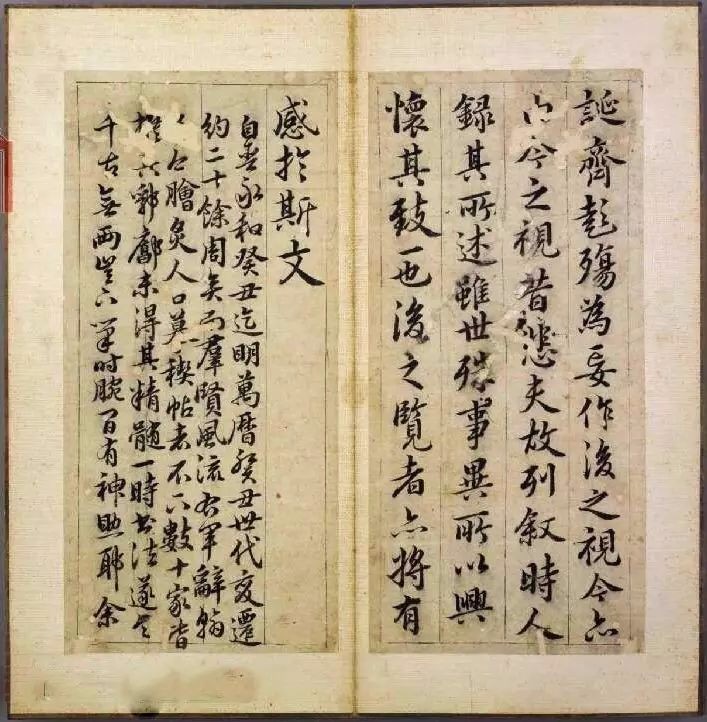 誕齊彭殤為妄作後之視今亦
由今之視昔悲夫故列叙時人
録其所述雖世殊事異所以興
懷其致一也後之覽者亦將有
感於斯文
自晉永和癸丑迄明萬曆癸丑世代變遷
約二十餘周矣而羣賢風流右軍辭翰
膾炙人口摹禊帖者不下數十家皆
郛廓未得其精髓一時書法遂令
千古無兩豈下筆時腕百有神助耶余